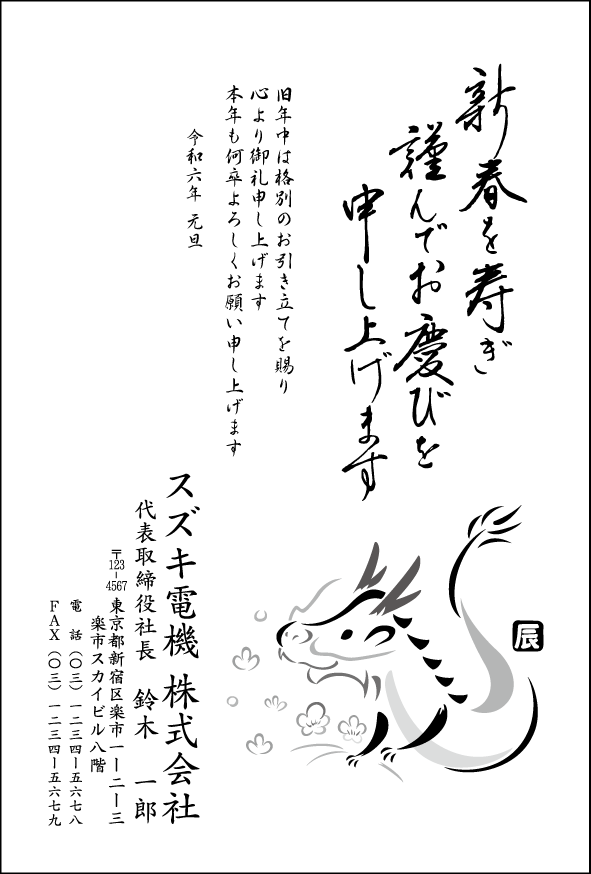 新春を寿ぎ
謹んでお慶びを
申し上げます
旧年中は格別のお引き立てを賜り
心より御礼申し上げます
本年も何卒よろしくお願い申し上げます
令和六年 元旦
辰
スズキ電機 株式会社
代表取締役社長 鈴木 一郎
〒123-4567 東京都新宿区楽市一ー二ー三
楽市スカイビル八階
電 話(〇三)一二三四ー五六七八
FAX(〇三)一二三四ー五六七九